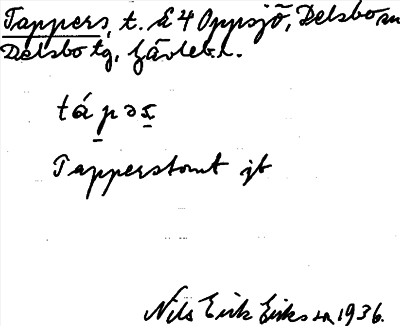 Tappers, t. Æ 4 Oppsjö, Delsbo sn
Delsbo tg, Gävlebl.
tápəs̱
Tapperstomt jb
Nils Erik Eriksson 1936.